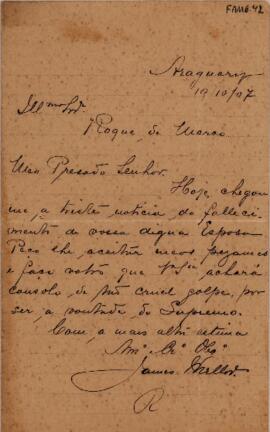 FAMB.42
Araguary
19/10/07
Illmo Snr
Roque de Marco
Meu Presado Senhor.
Hoje chegou
me a triste noticia do falleci-
mento de vossa digna Esposa
Peço lhe aceitar meos pezames
e faço votos que achará
consolo de tão cruel golpe, por
ser a vontade do Supremo.
Com a mais alta estima
Amo Cro Obgo
James
R